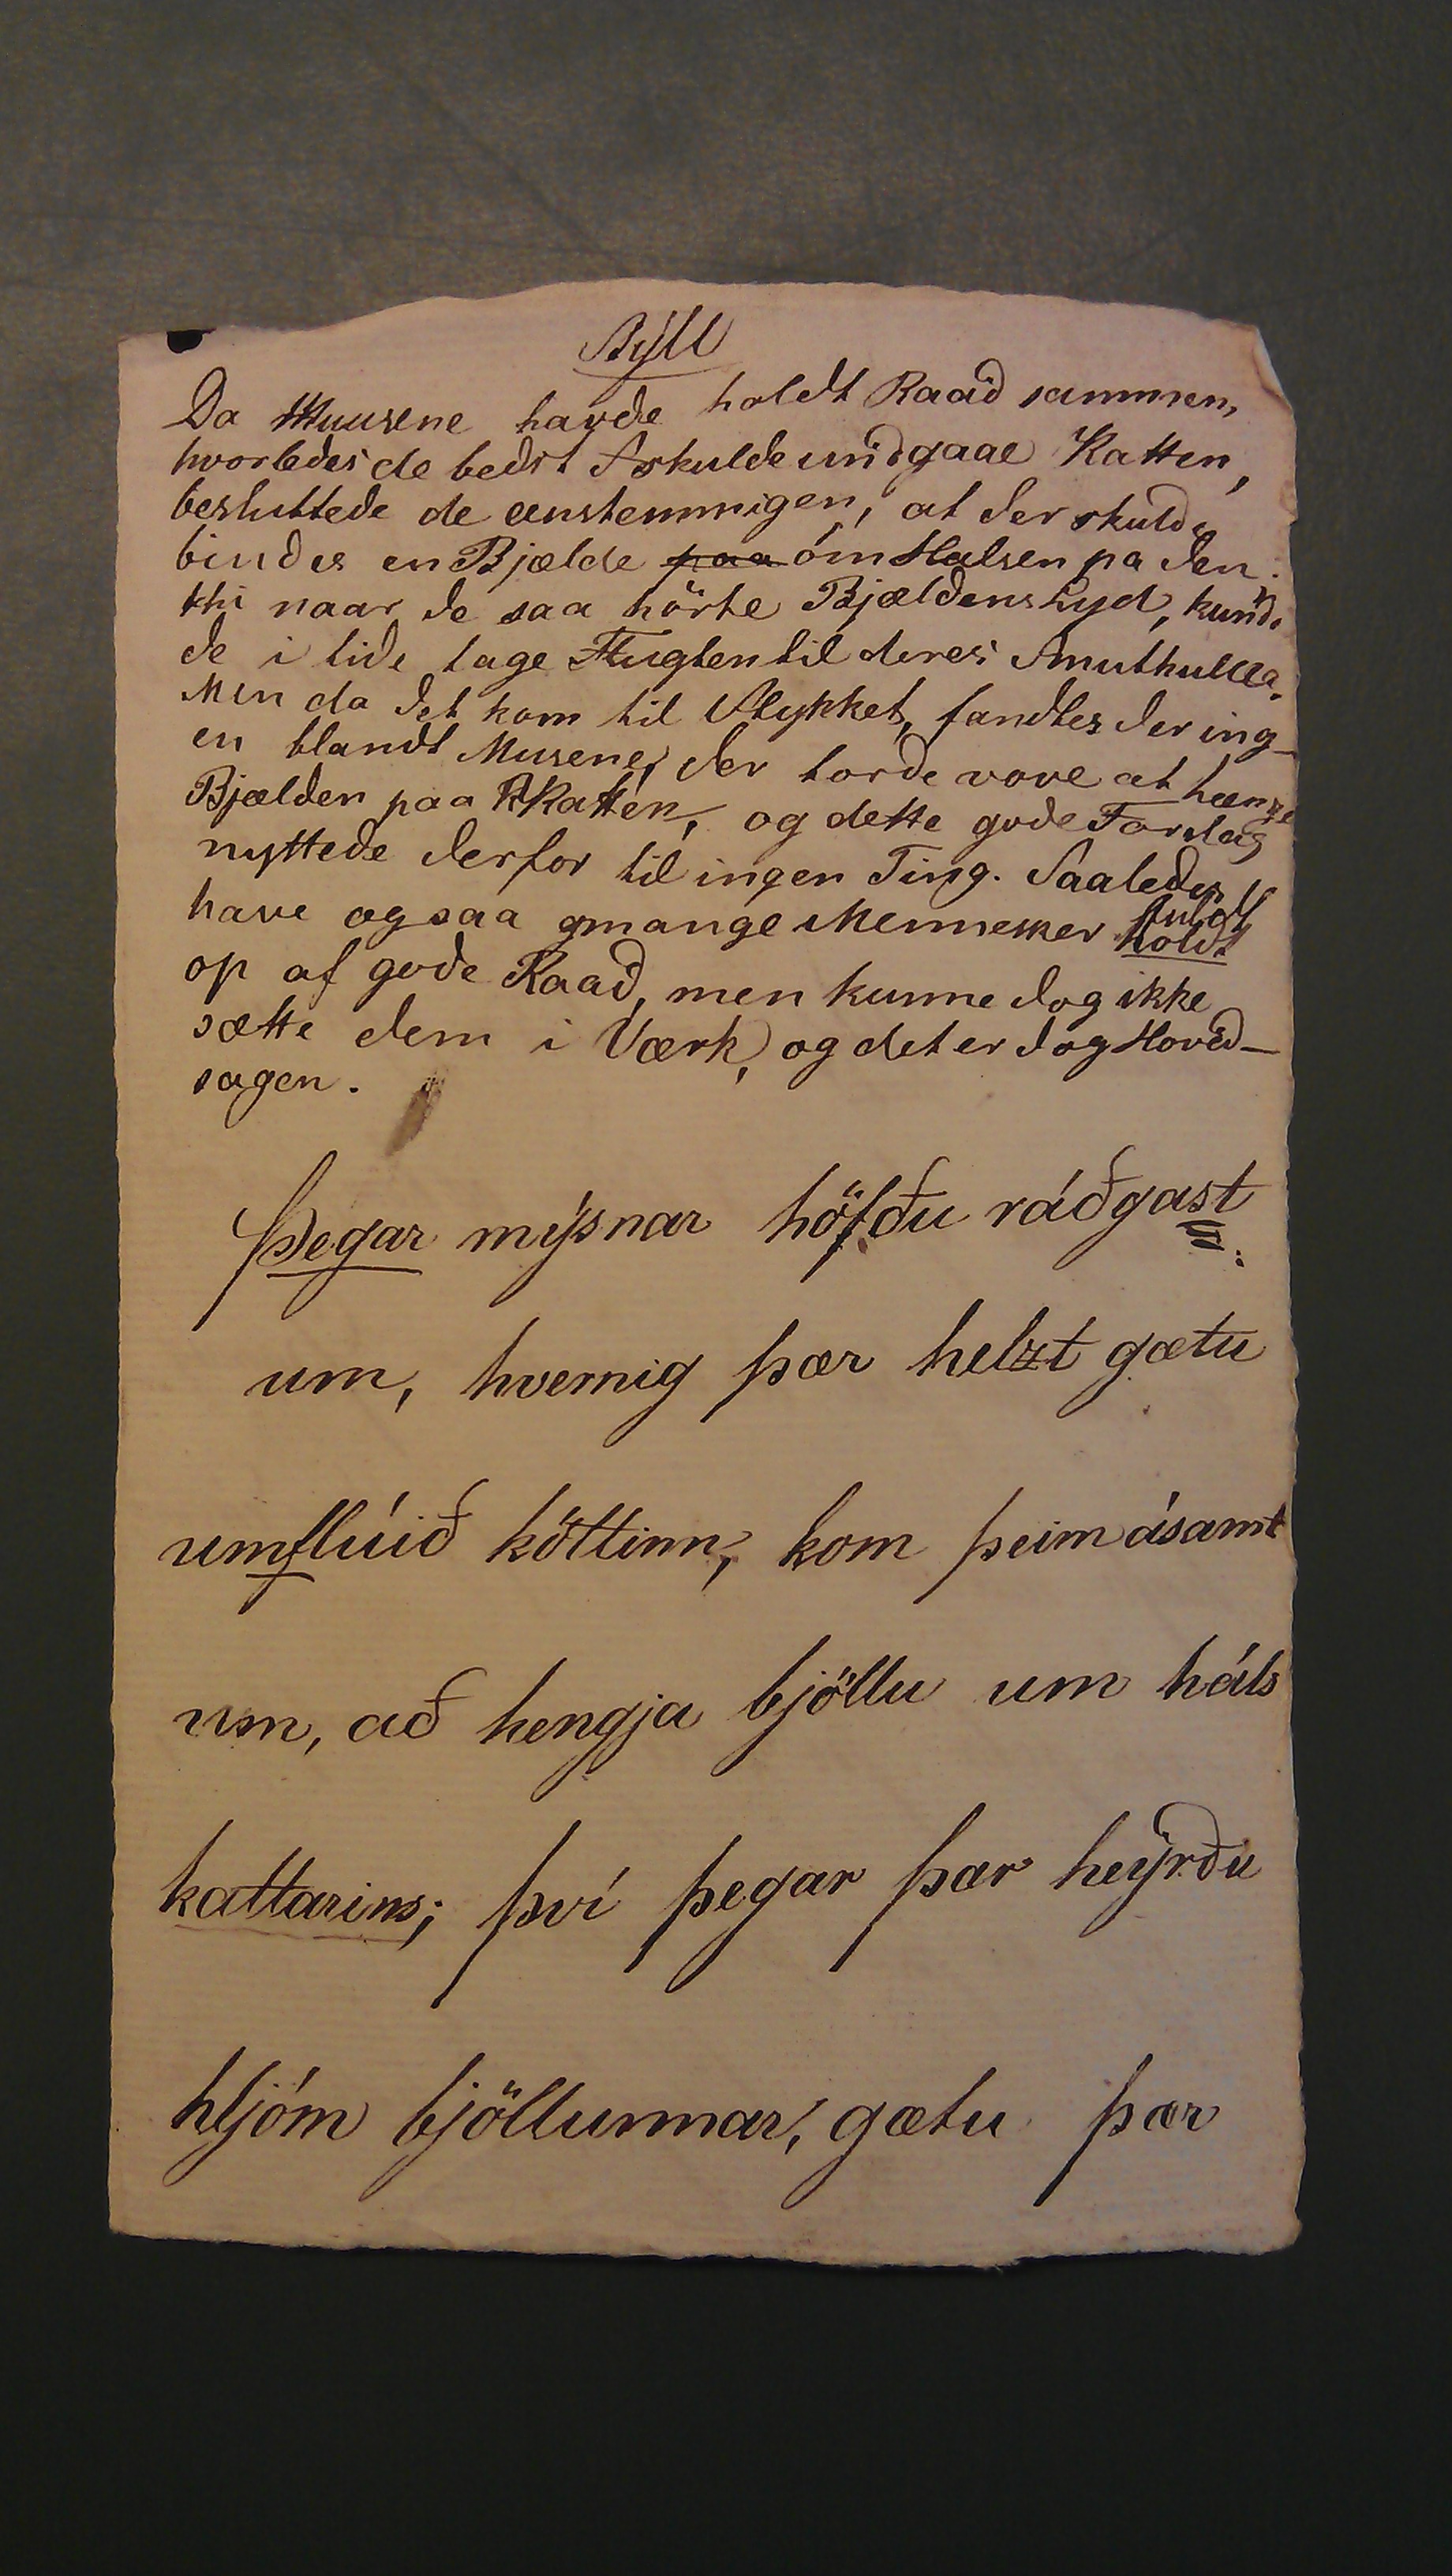 Stýll
Da Muusene havde holdt Raad sammen,
hvorledes de bedst skulde undgaae Katten,
besluttede de eenstemmigen, at der skulde
bindes en Bjælde paa om Halsen pa den;
thi naar de saa hörte Bjældens Lyd, kunde
de i tide tage Flugten til deres Smuthuller.
Men da det kom til Stykket, fandtes der ing-
en blandt Musene, der torde vove at hænge
Bjælden paa Katten, og dette gode Forslag
nyttede derfor til ingen Ting. Saaledes
have ogsaa mange Mennesker fuldt
holdt
op af gode Raad, men kunne dog ikke
sætte dem i Værk, og det er dog Hoved-
sagen.
Þegar mýsnar höfðu ráðgast
um, hvernig þær helzt gætu
umflúið köttinn, kom þeim ásamt
um, að hengja bjöllu um háls
kattarins; því þegar þær heÿrðu
hljóm bjöllunnar, gætu þær